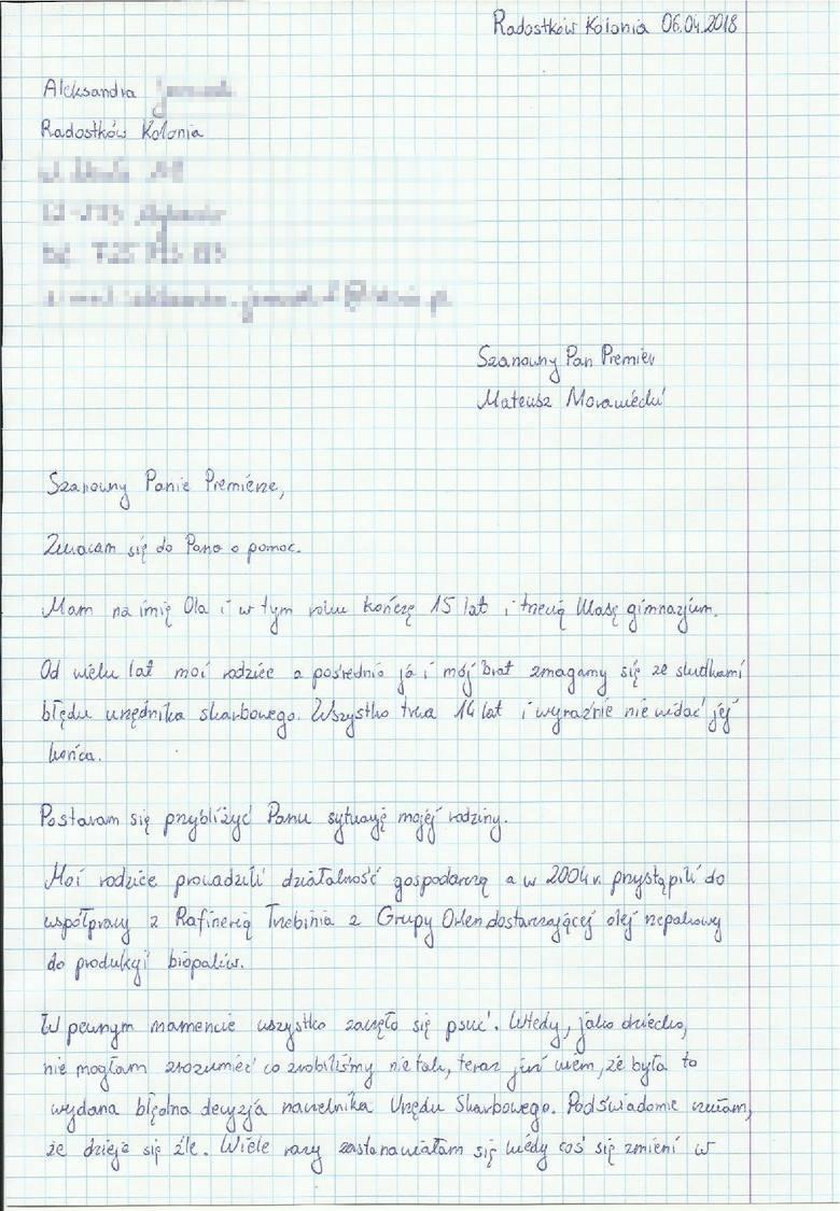 Radostków Kolonia 06.04.2018
Aleksandra
Radostków Kolonia
Szanowny Pan Premier
Mateusz Morawiecki
Szanowny Panie Premierze,
Zwracam się do Pana o pomoc.
Mam na imię Ola i w tym roku kończę 15 lat i trzecią klasę gimnazjum.
Od wielu lat moi rodzice a pośrednio ja i mój brat zmagamy się ze skutkami
błędu urzędnika skarbowego. Wszystko trwa 14 lat i wyraźnie nie widać jej
końca.
Postaram się przybliżyć Panu sytuację mojej rodziny.
Moi rodzice prowadzili działalność gospodarczą a w 2004 r. przystąpili do
współpracy z Rafinerią Trzebinia z Grupy Orlen dostarczającej olej rzepakowy
do produkcji biopaliw.
W pewnym momencie wszystko zaczęło się psuć. Wtedy, jako dziecko,
nie mogłam zrozumieć co zrobiliśmy nie tak, teraz już wiem, że była to
wydana błędna decyzja naczelnika Urzędu Skarbowego. Podświadomie czułam,
że dzieje się źle. Wiele razy zastanawiałam się kiedy coś się zmieni w